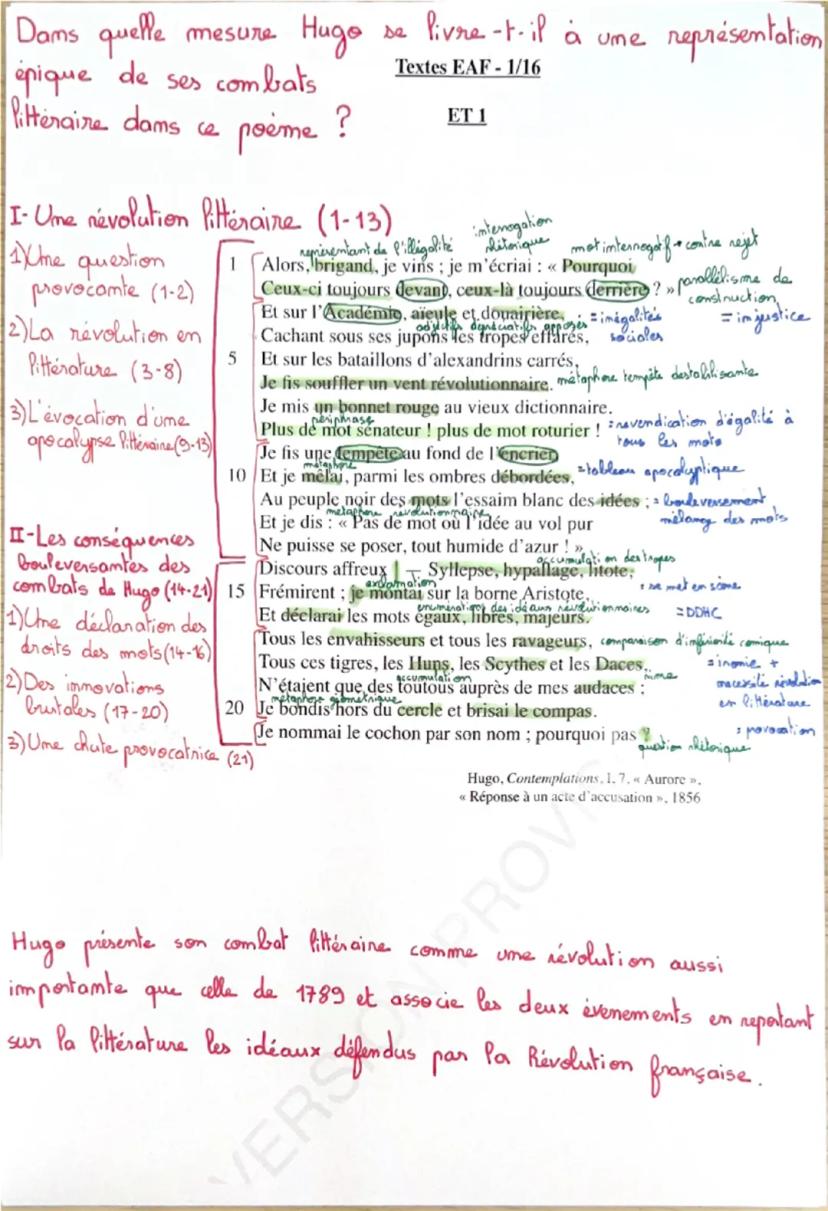 Dans quelle mesure Hugo se livre-t-il à une représentation
épique de ses combats
Textes EAF - 1/16
littéraire dans ce poème ?
ET 1
I- Une révolution littéraire (1-13)
1) Une question
provocante (1-2)
2) La révolution en
littérature (3-8)
3) L'évocation d'une
apocalypse littéraire (9-13)
II- Les conséquences
bouleversantes des
combats de Hugo (14-21)
1) Une déclaration des
droits des mots (14-16)
2) Des innovations
brutales (17-20)
3) Une chute provocatrice (21)
représentant de l'illégalité
interrogation
rhétorique
mot interrogatif → contre rejet
1 Alors, brigand, je vins ; je m'écriai : « Pourquoi
Ceux-ci toujours devant, ceux-là toujours derrière ? »
parallélisme de
construction
= injustice
Et sur l'Académie, aïeule et douairière,
= inégalités
sociales
adjectifs dépréciatifs opposés
Cachant sous ses jupons les tropes effarés,
5 Et sur les bataillons d'alexandrins carrés,
Je fis souffler un vent révolutionnaire.
métaphore tempête destabilisante
Je mis un bonnet rouge au vieux dictionnaire.
périphrase
Plus de mot sénateur ! plus de mot roturier !
= revendication d'égalité à
tous les mots
Je fis une tempête au fond de l'encrier,
métaphore
10 Et je mêlai, parmi les ombres débordées,
= tableau apocalyptique
Au peuple noir des mots l'essaim blanc des idées ;
= bouleversement
mélange des mots
métaphore révolutionnaire
Et je dis : « Pas de mot où l'idée au vol pur
Ne puisse se poser, tout humide d'azur ! »
accumulation des tropes
Discours affreux ! – Syllepse, hypallage, litote,
exclamation
15 Frémirent ; je montai sur la borne Aristote,
= se met en scène
énumération des idéaux révolutionnaires
Et déclarai les mots égaux, libres, majeurs.
= DDHC
Tous les envahisseurs et tous les ravageurs,
comparaison d'infériorité comique
Tous ces tigres, les Huns, les Scythes et les Daces,
= ironie +
nécessité révolution
en littérature
accumulation
rime
N'étaient que des toutous auprès de mes audaces ;
métaphore géométrique
20 Je bondis hors du cercle et brisai le compas.
Je nommai le cochon par son nom ; pourquoi pas ?
= provocation
question rhétorique
Hugo, Contemplations, I, 7, « Aurore »,
« Réponse à un acte d'accusation », 1856
Hugo présente son combat littéraire comme une révolution aussi
importante que celle de 1789 et associe les deux évenements en reportant
sur la littérature les idéaux défendus par la Révolution française.
VERSION PROVIS